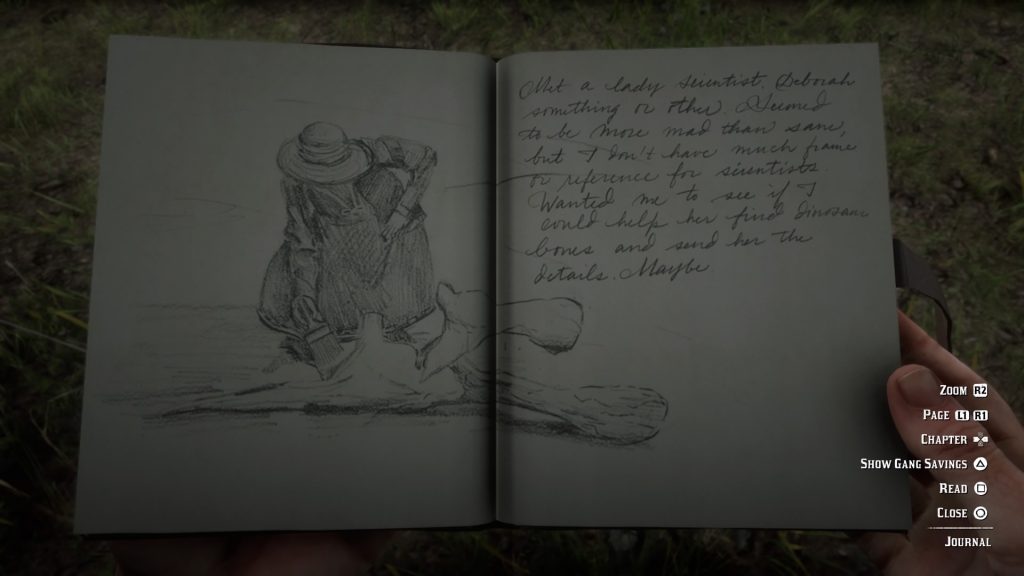 Met a lady scientist, Deborah
something or other. Seemed
to be more mad than sane,
but I don't have much frame
or reference for scientists.
Wanted me to see if I
could help her find dinosaur
bones and send her the
details. Maybe
ZOOM R2
PAGE L1 R1
CHAPTER
SHOW GANG SAVINGS
READ
CLOSE
JOURNAL